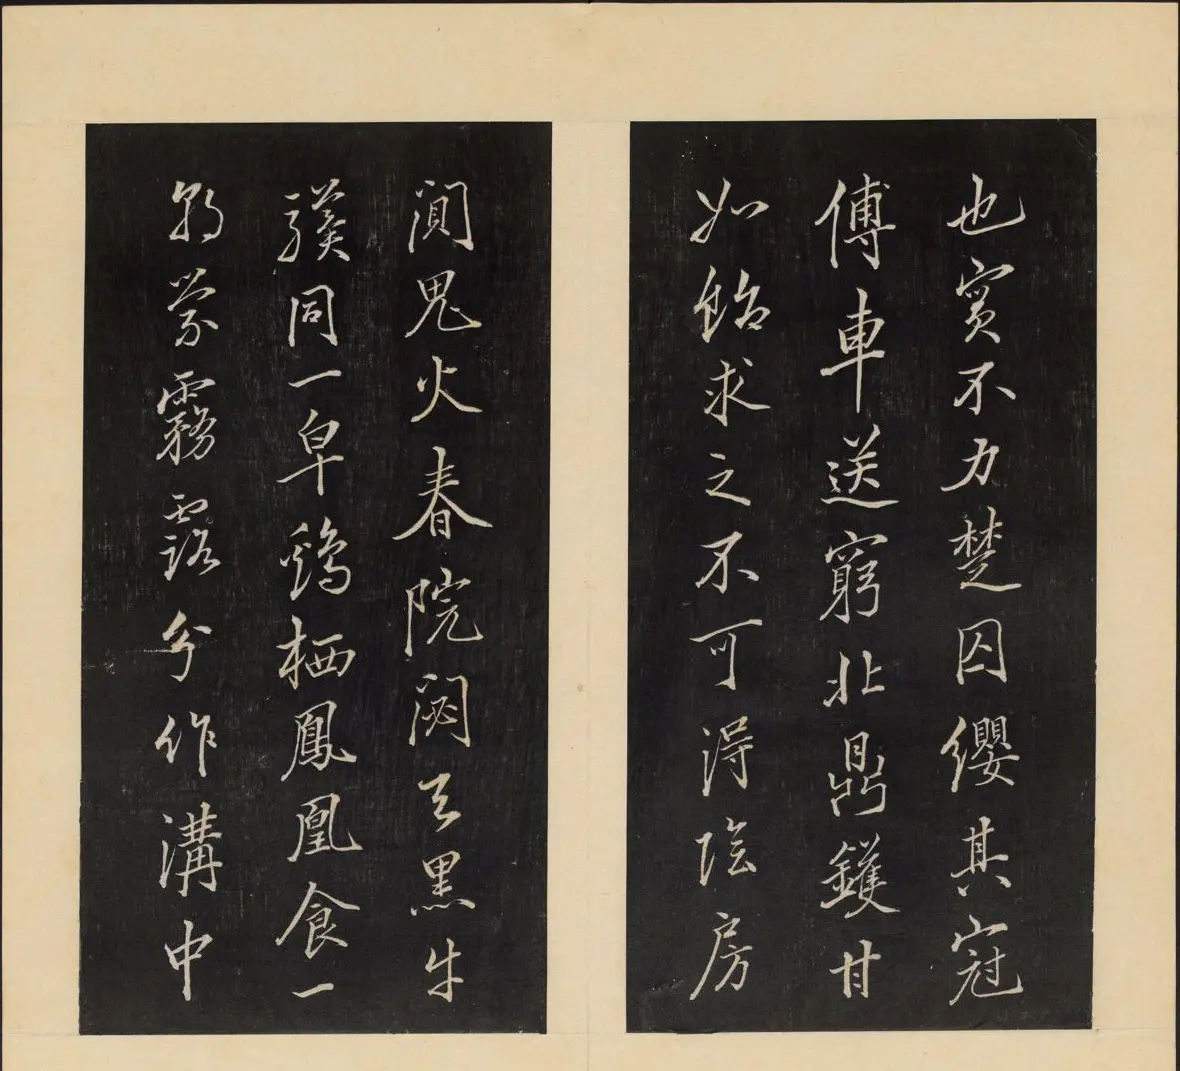 也實不力楚囚纓其冠
傳車送窮北鼎鑊甘
如飴求之不可得陰房
闃鬼火春院閟天黑牛
驥同一皁鷄栖鳳凰食一
朝蒙霧露分作溝中